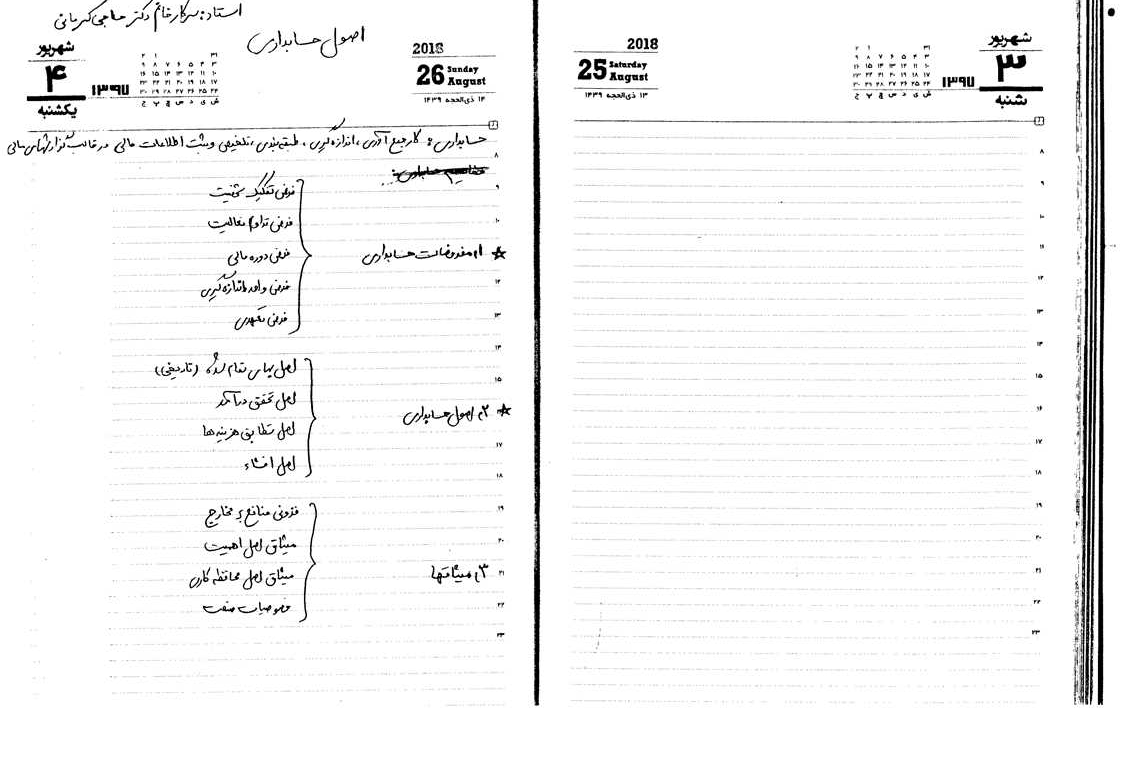 استاد: سرکار خانم دکتر حاجی کرمانی
اصول حسابداری
شهریور
۴
یکشنبه
۱۳۹۷
2018
26 Sunday August
۱۴ ذی‌الحجه ۱۴۳۹
حسابداری: کار جمع آوری، اندازه گیری، طبقه بندی، تلخیص و ثبت اطلاعات مالی در قالب گزارشهای مالی
۱. مفروضات حسابداری
فرض تفکیک شخصیت
فرض تداوم فعالیت
فرض دوره مالی
فرض واحد اندازه گیری
فرض تعهدی
۲. اصول حسابداری
اصل بهای تمام شده (تاریخی)
اصل تحقق درآمد
اصل تطابق هزینه ها
اصل افشاء
۳. میثاقها
فزونی منافع بر مخارج
میثاق اصل اهمیت
میثاق اصل محافظه کاری
خصوصیات صنعت
۸
۹
۱۰
۱۲
۱۳
۱۴
۱۵
۱۷
۱۸
۱۹
۲۰
۲۱
۲۲
۲۳
شهریور
۳
شنبه
۱۳۹۷
2018
25 Saturday August
۱۳ ذی‌الحجه ۱۴۳۹
۸
۹
۱۰
۱۱
۱۲
۱۳
۱۴
۱۵
۱۶
۱۷
۱۸
۱۹
۲۰
۲۱
۲۲
۲۳